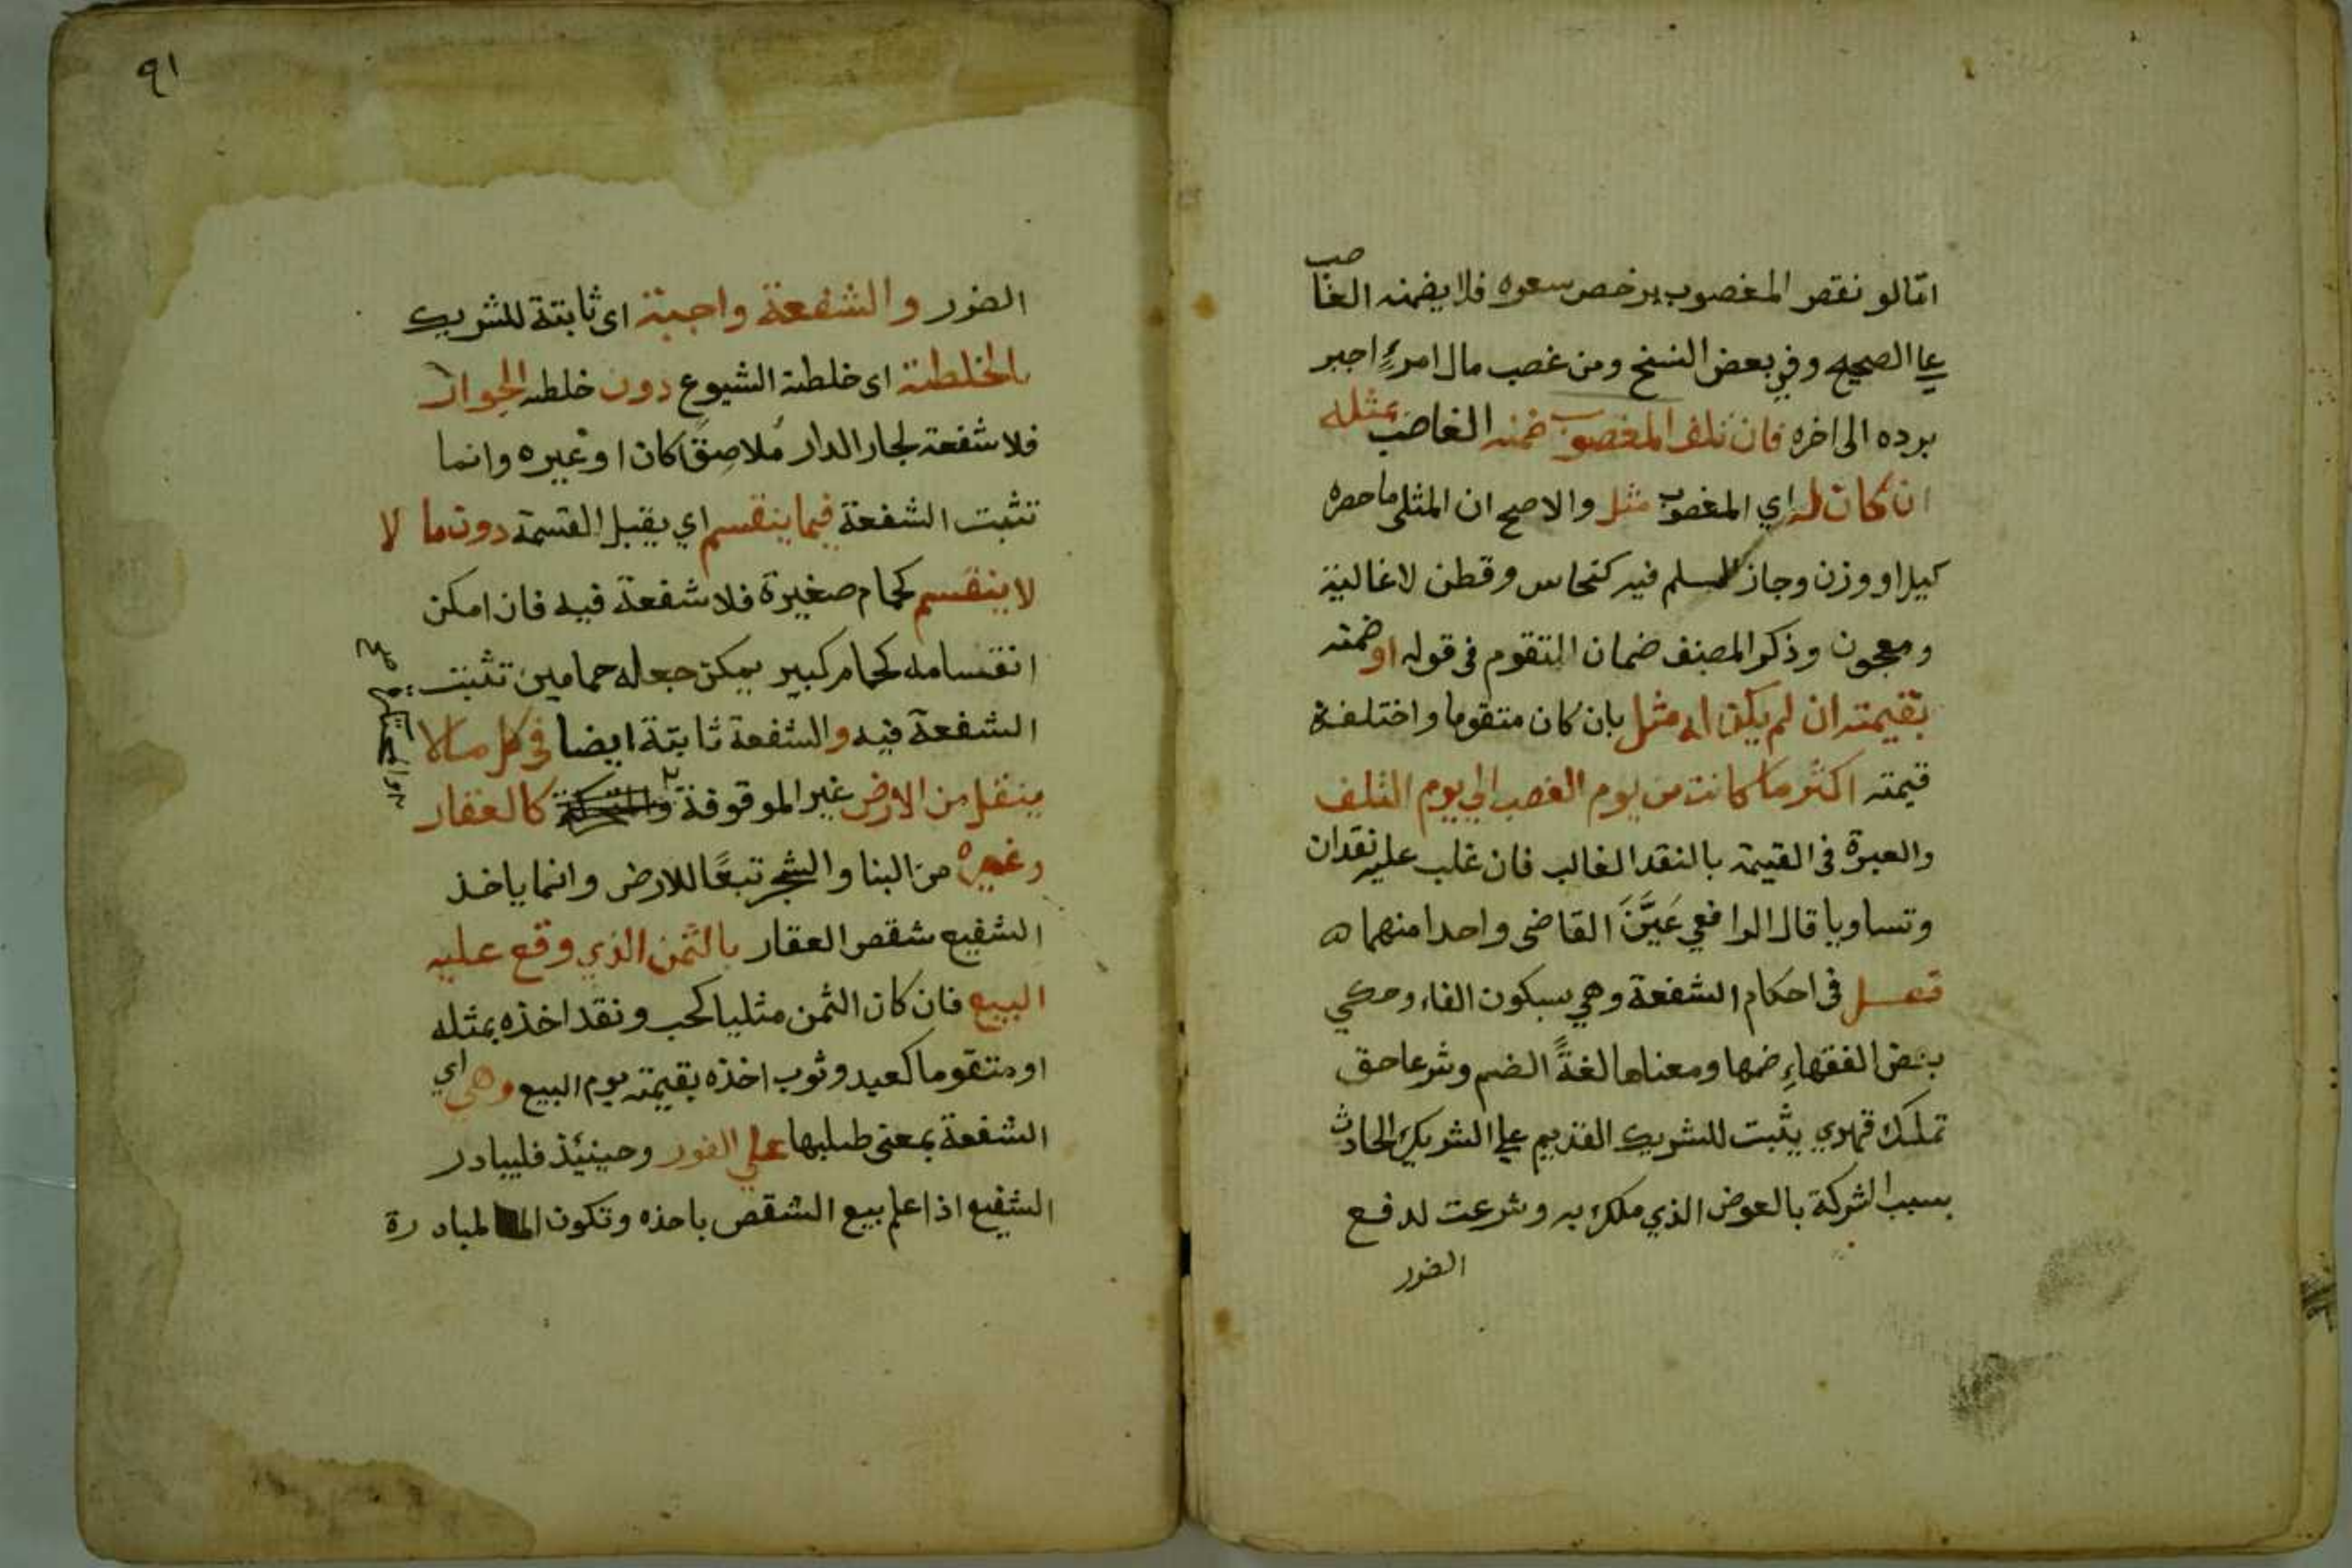 امّا لو نقص المغصوب برخص سعره فلا يضمنه الغاصب
على الصحيح وفي بعض النسخ ومن غصب مال امرءٍ اجبر
برده الى اخره فان تلف المغصوب ضمنه الغاصب بمثله
ان كان له اي المغصوب مثل والاصح ان المثلي ما حصره
كيل او وزن وجاز السلم فيه كنحاس وقطن لا غالية
ومعجون وذكر المصنف ضمان المتقوم في قوله او ضمنه
بقيمته ان لم يكن له مثل بان كان متقوما واختلفة
قيمته اكثر ما كانت من يوم الغصب الي يوم التلف
والعبرة في القيمة بالنقد الغالب فان غلب عليه نقدان
وتساويا قال الرافعي عَيَّنَ القاضى واحدا منهما ه
فصل فى احكام الشفعة وهي بسكون الفاء وحكي
بعض الفقهاءِ ضمها ومعناها لغةً الضم وشرعا حق
تملك قهري يثبت للشريك القديم علي الشريك الحادث
بسبب الشركة بالعوض الذي ملك به وشرعت لدفع
الضرر
٩١
الضرر والشفعة واجبة اى ثابتة للشريك
بالخلطة اى خلطة الشيوع دون خلطة الجوار
فلا شفعة لجار الدار مُلاصِقًا كان او غيره وانما
تثبت الشفعة فيما ينقسم اي يقبل القسمة دون ما لا
لا ينقسم كحمام صغيرة فلا شفعة فيه فان امكن
انقسامه كحمام كبير يمكن جعله حمامين تثبت
الشفعة فيه والشفعة ثابتة ايضا في كل ما لا
ينقل من الارض غير الموقوفة والمحتكرة كالعقار
وغيره من البنا والشجر تبعًا للارض وانما ياخذ
الشفيع شقص العقار بالثمن الذي وقع عليه
البيع فان كان الثمن مثليا كحب ونقد اخذه بمثله
او متقوما كعبد وثوب اخذه بقيمته يوم البيع وهي اي
الشفعة بمعنى طلبها على الفور وحينئذ فليبادر
الشفيع اذا علم بيع الشقص باخذه وتكون المبادرة